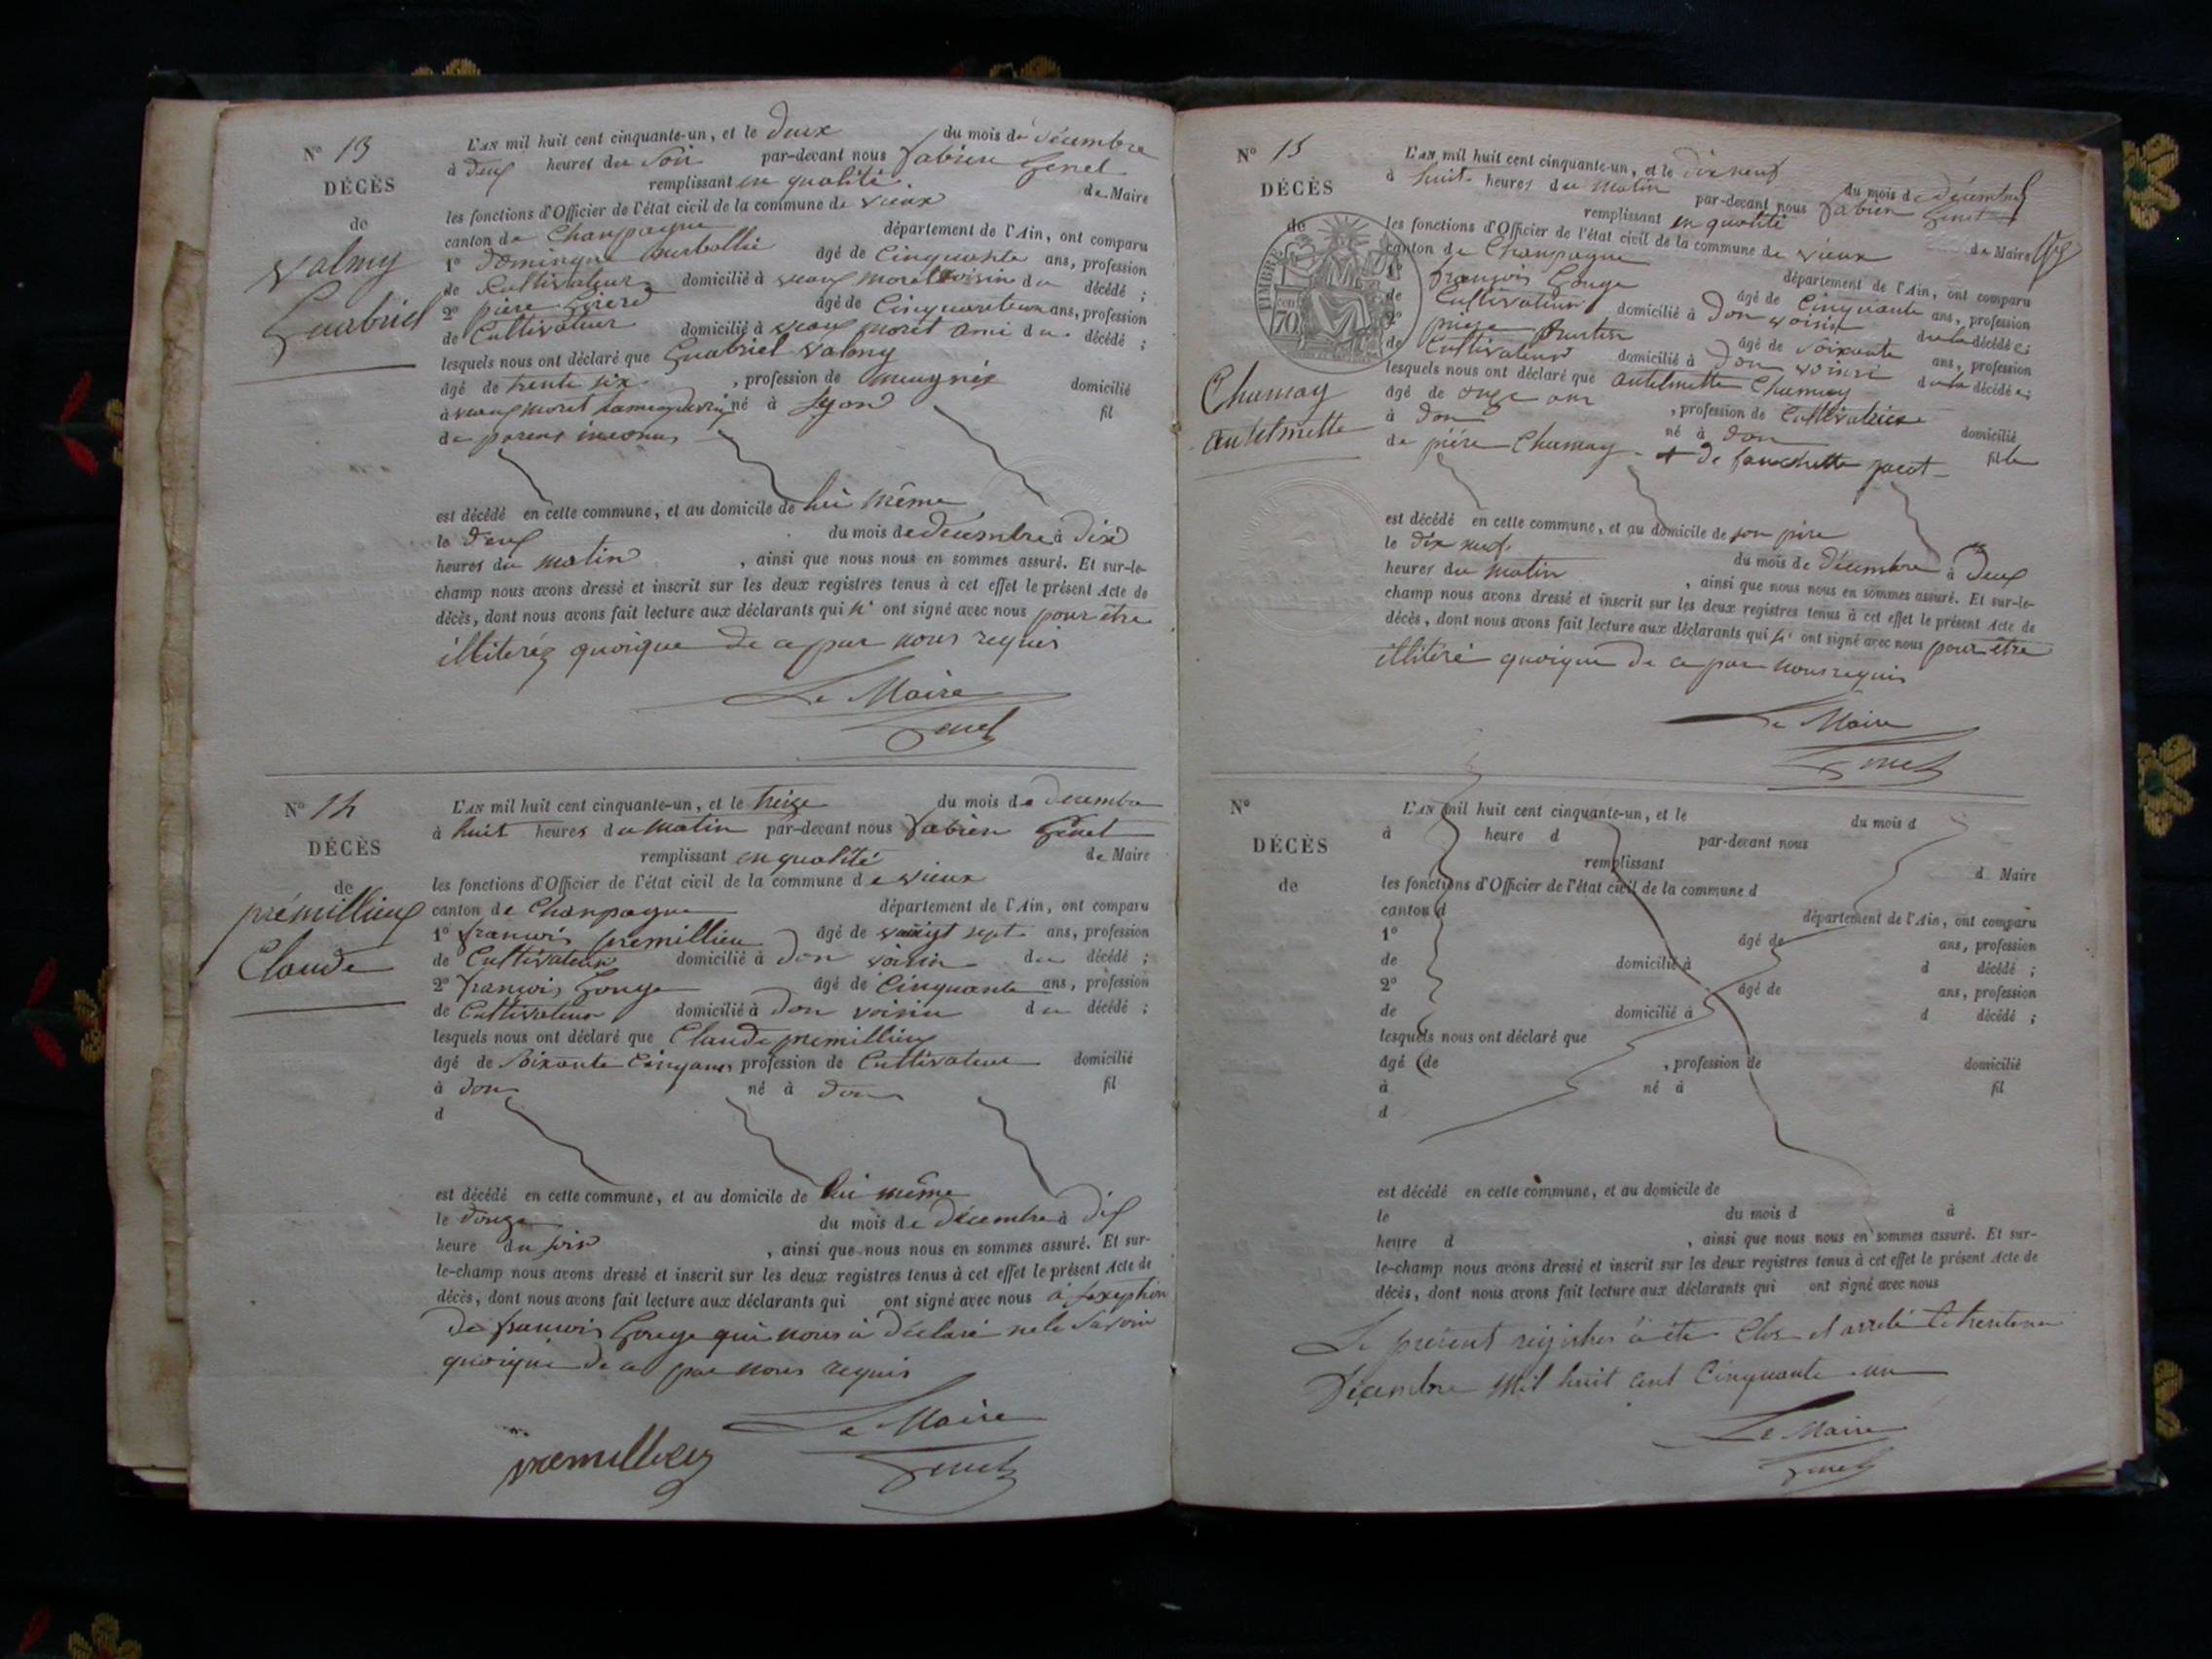 N° 13
DÉCÈS
de
Valmy
Guabriel
L'AN mil huit cent cinquante-un, et le deux du mois de décembre
à deux heures du Soir par-devant nous fabien Genet
remplissant en qualité de Maire
les fonctions d'Officier de l'état civil de la commune de vieux
canton de Champagne département de l'Ain, ont comparu
1° domingue âgé de Cinquante ans, profession
de Cultivateur domicilié à voisin du décédé ;
2° piere âgé de Cinquante un ans, profession
de Cultivateur domicilié à moret ami du décédé ;
lesquels nous ont déclaré que Guabriel Valmy
âgé de trente six , profession de domicilié
à moret né à Lyon fil
de parens inconus
est décédé en cette commune, et au domicile de lui même
le deux du mois de décembre à dix
heures du matin , ainsi que nous nous en sommes assuré. Et sur-le-
champ nous avons dressé et inscrit sur les deux registres tenus à cet effet le présent Acte de
décès, dont nous avons fait lecture aux déclarants qui n' ont signé avec nous pour être
illiterés quoique de ce par nous requis
Le Maire
Genet
N° 14
DÉCÈS
de
prémillieux
Claude
L'AN mil huit cent cinquante-un, et le treize du mois de decembre
à huit heures du matin par-devant nous fabien Genet
remplissant en qualité de Maire
les fonctions d'Officier de l'état civil de la commune de vieux
canton de Champagne département de l'Ain, ont comparu
1° francois premillieu âgé de vaingt sept ans, profession
de Cultivateur domicilié à don voisin du décédé ;
2° françois Gouge âgé de Cinquante ans, profession
de Cultivateur domicilié à don voisin du décédé ;
lesquels nous ont déclaré que Claude premillieux
âgé de Soixante Cinq ans, profession de Cultivateur domicilié
à don né à don fil
d
est décédé en cette commune, et au domicile de lui même
le douze du mois de décembre à dix
heure du soir , ainsi que nous nous en sommes assuré. Et sur-
le-champ nous avons dressé et inscrit sur les deux registres tenus à cet effet le présent Acte de
décès, dont nous avons fait lecture aux déclarants qui ont signé avec nous à l'exeption
de francois Gouge qui nous à déclaré ne le Savoir
quoique de ce par nous requis
Le Maire
premillieux
Genet
N° 15
DÉCÈS
de
TIMBRE
70
Chamay
antelmette
L'AN mil huit cent cinquante-un, et le dix neuf du mois de décembre
à huit heures du matin par-devant nous fabien Genet
remplissant en qualité de Maire
les fonctions d'Officier de l'état civil de la commune de vieux
canton de Champagne département de l'Ain, ont comparu
1° françois Gouge âgé de Cinquante ans, profession
de Cultivateur domicilié à Don voisin de la décédée ;
2° piere âgé de Soixante ans, profession
de Cultivateur domicilié à Don voisin de la décédée ;
lesquels nous ont déclaré que antelmette Chamay
âgé de onze ans , profession de Cultivatrice domicilié
à don né à don fille
de piére Chamay et de fanchette jacot
est décédé en cette commune, et au domicile de son père
le dix neuf du mois de décembre à deux
heures du matin , ainsi que nous nous en sommes assuré. Et sur-le-
champ nous avons dressé et inscrit sur les deux registres tenus à cet effet le présent Acte de
décès, dont nous avons fait lecture aux déclarants qui n' ont signé avec nous pour être
illitéré quoique de ce par nous requis
Le Maire
Genet
N°
DÉCÈS
de
L'AN mil huit cent cinquante-un, et le du mois d
à heure d par-devant nous
remplissant d Maire
les fonctions d'Officier de l'état civil de la commune d
canton d département de l'Ain, ont comparu
1° âgé de ans, profession
de domicilié à d décédé ;
2° âgé de ans, profession
de domicilié à d décédé ;
lesquels nous ont déclaré que
âgé de , profession de domicilié
à né à fil
d
est décédé en cette commune, et au domicile de
le du mois d à
heure d , ainsi que nous nous en sommes assuré. Et sur-
le-champ nous avons dressé et inscrit sur les deux registres tenus à cet effet le présent Acte de
décès, dont nous avons fait lecture aux déclarants qui ont signé avec nous
Le présent régistre à été Clos et arrêté le trente un
décembre Mil huit Cent Cinquante un
Le Maire
Genet